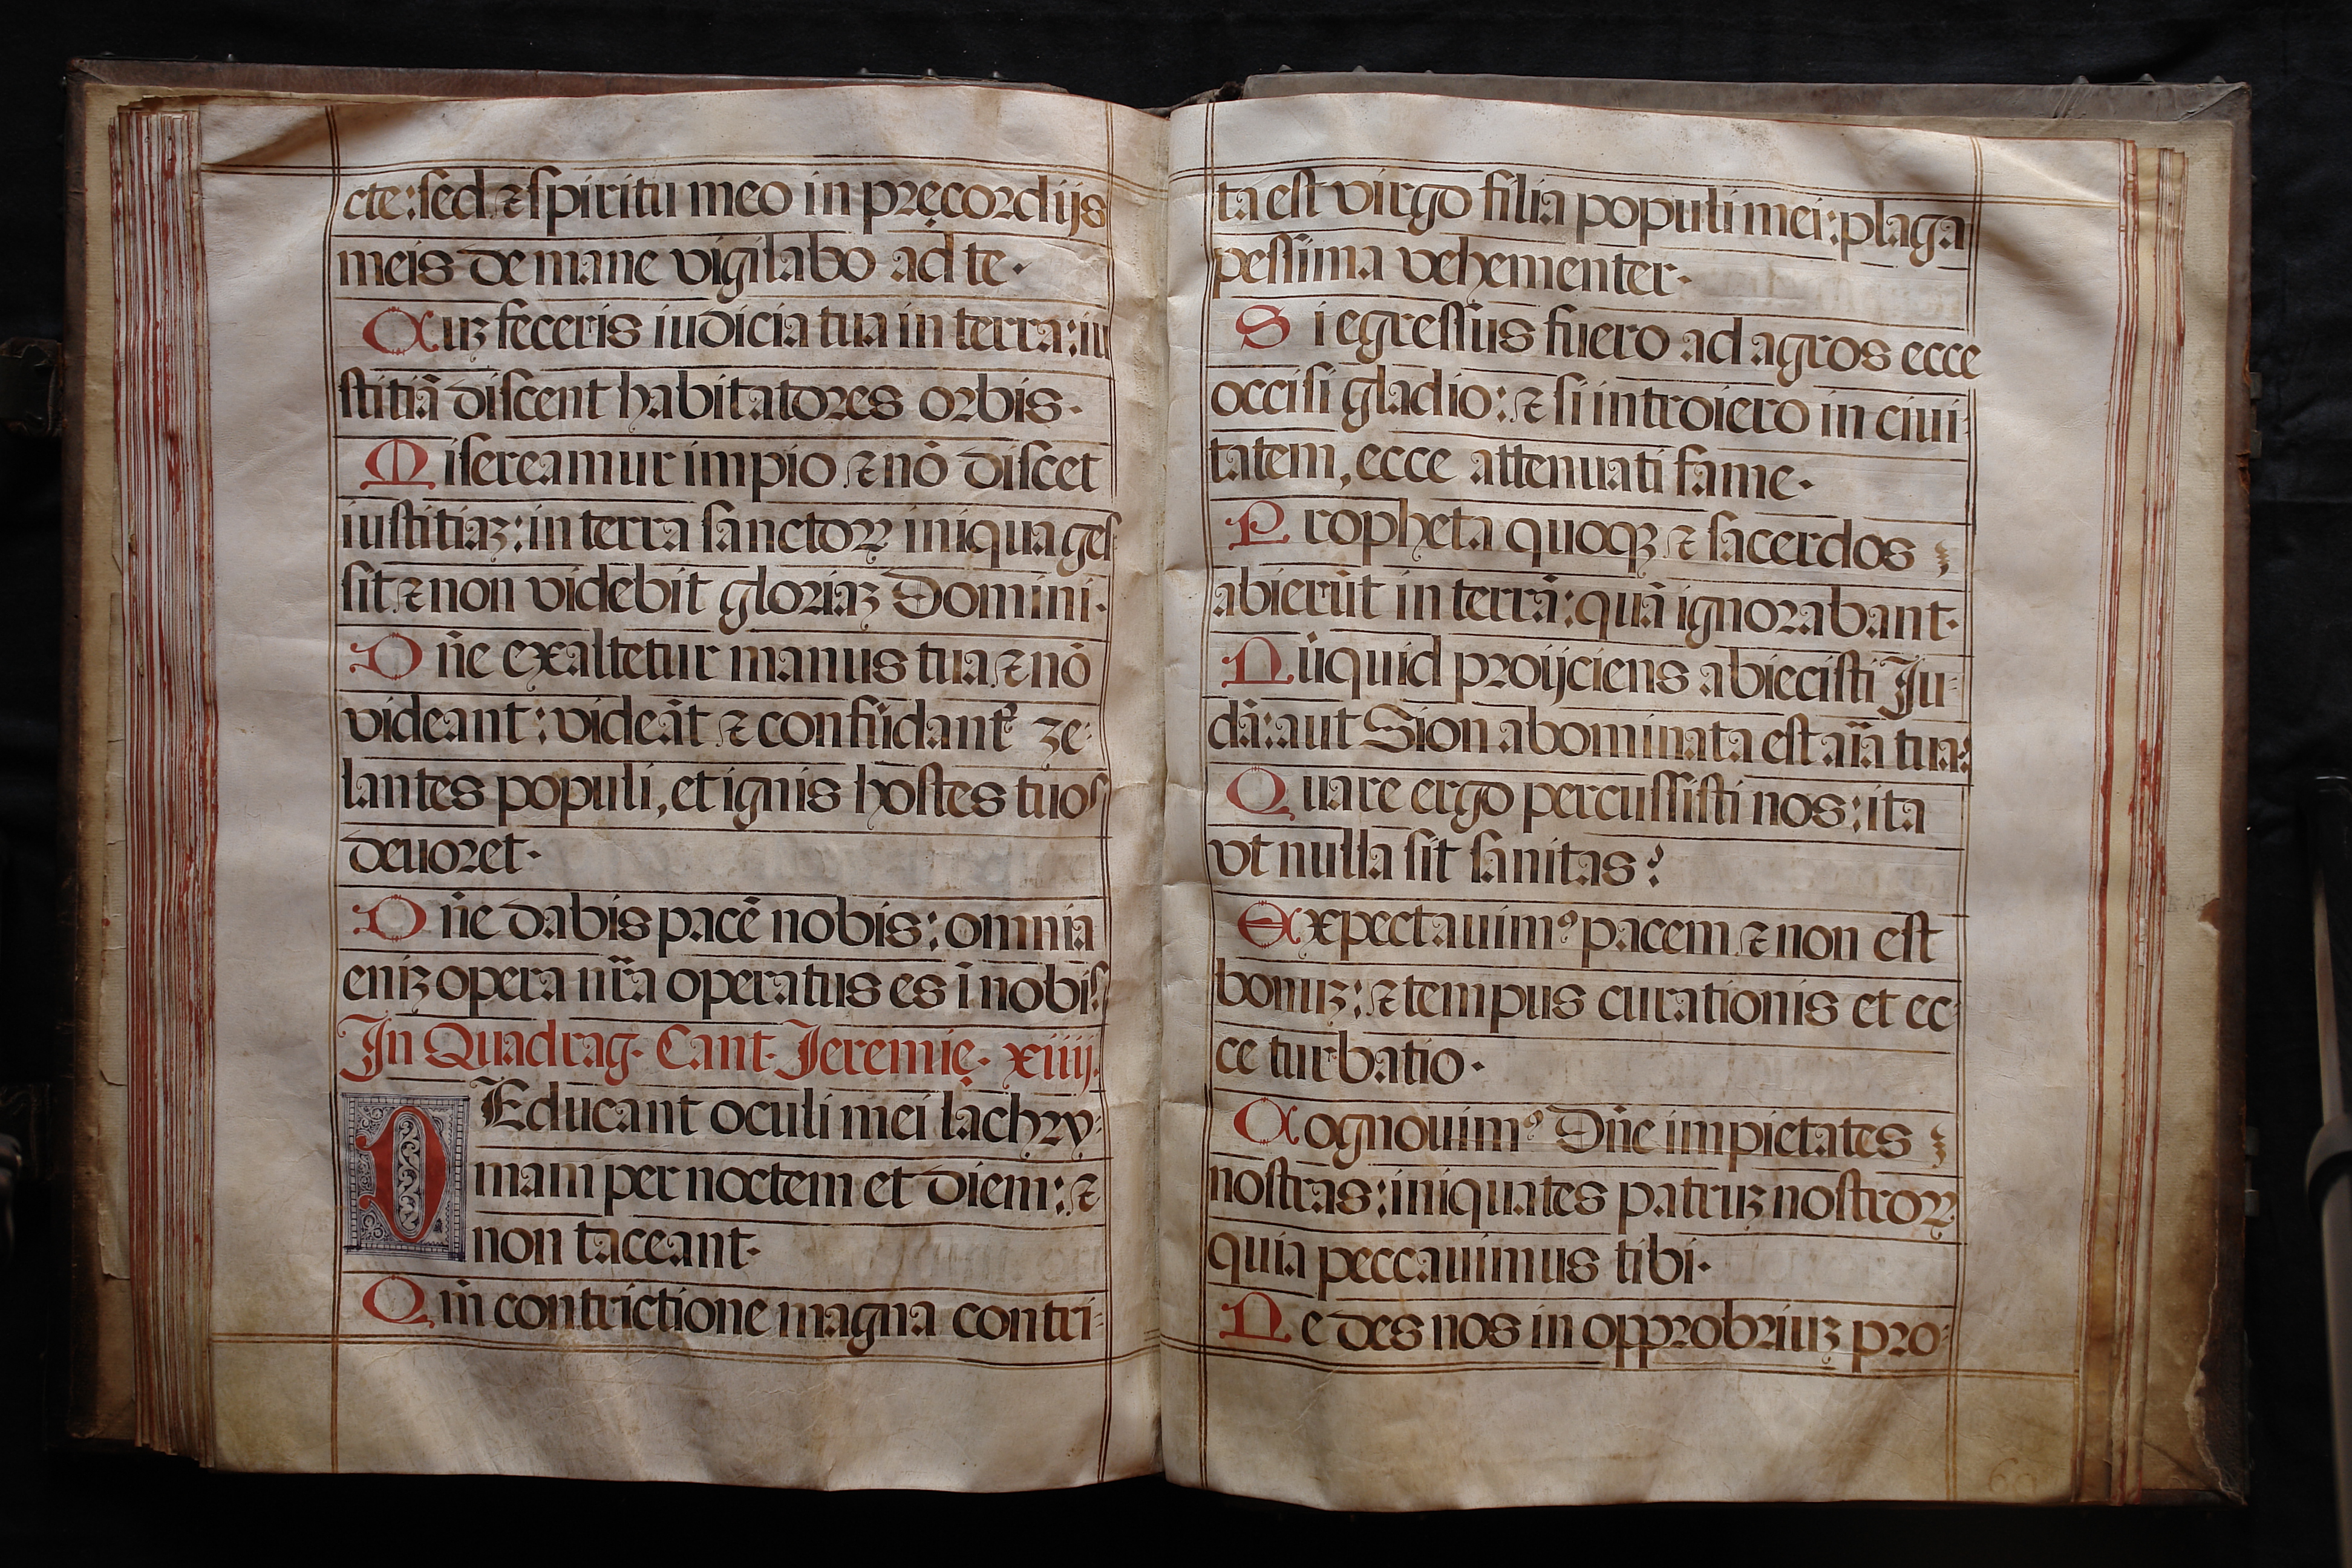 cte: sed ⁊ spiritu meo in pręcordijs
meis de mane vigilabo ad te.
Cuȝ feceris iudicia tua in terra: iu
stitiā discent habitatores orbis.
Misereamur impio ⁊ nō discet
iustitiaȝ: in terra sanctoꝝ iniqua ges
sit ⁊ non videbit gloriaȝ Domini.
Dn̄e exaltetur manus tua ⁊ nō
videant: videāt ⁊ confūdant᷑ ze-
lantes populi, et ignis hostes tuos
deuoret.
Dn̄e dabis pacē nobis: omnia
eniȝ opera nr̄a operatus es ī nobis.
In Quadrag. Cant. Jeremię. xiiij.
DEducant oculi mei lachry-
mam per noctem et diem: ⁊
non taceant.
Qm̄ contrictione magna contri-
ta est virgo filia populi mei: plaga
pessima vehementer.
Si egressus fuero ad agros ecce
occisi gladio: ⁊ si introiero in ciui-
tatem, ecce attenuati fame.
Propheta quoqȝ ⁊ sacerdos
abierūt in terrā: quā ignorabant.
Nūquid proijciens abiecisti Ju-
dā: aut Sion abominata est aīa tua:
Quare ergo percussisti nos: ita
vt nulla sit sanitas?
Expectauimꝰ pacem ⁊ non est
bonuȝ: ⁊ tempus curationis et ec-
ce turbatio.
Cognouimꝰ Dn̄e impietates
nostras: iniquates patruȝ nostroꝝ
quia peccauimus tibi.
Ne des nos in opprobriuȝ pro-